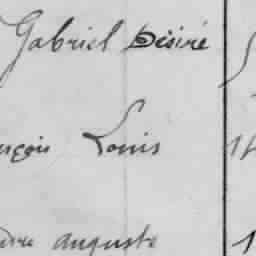 Gabriel Désiré
nçois Louis 14
dre auguste 1